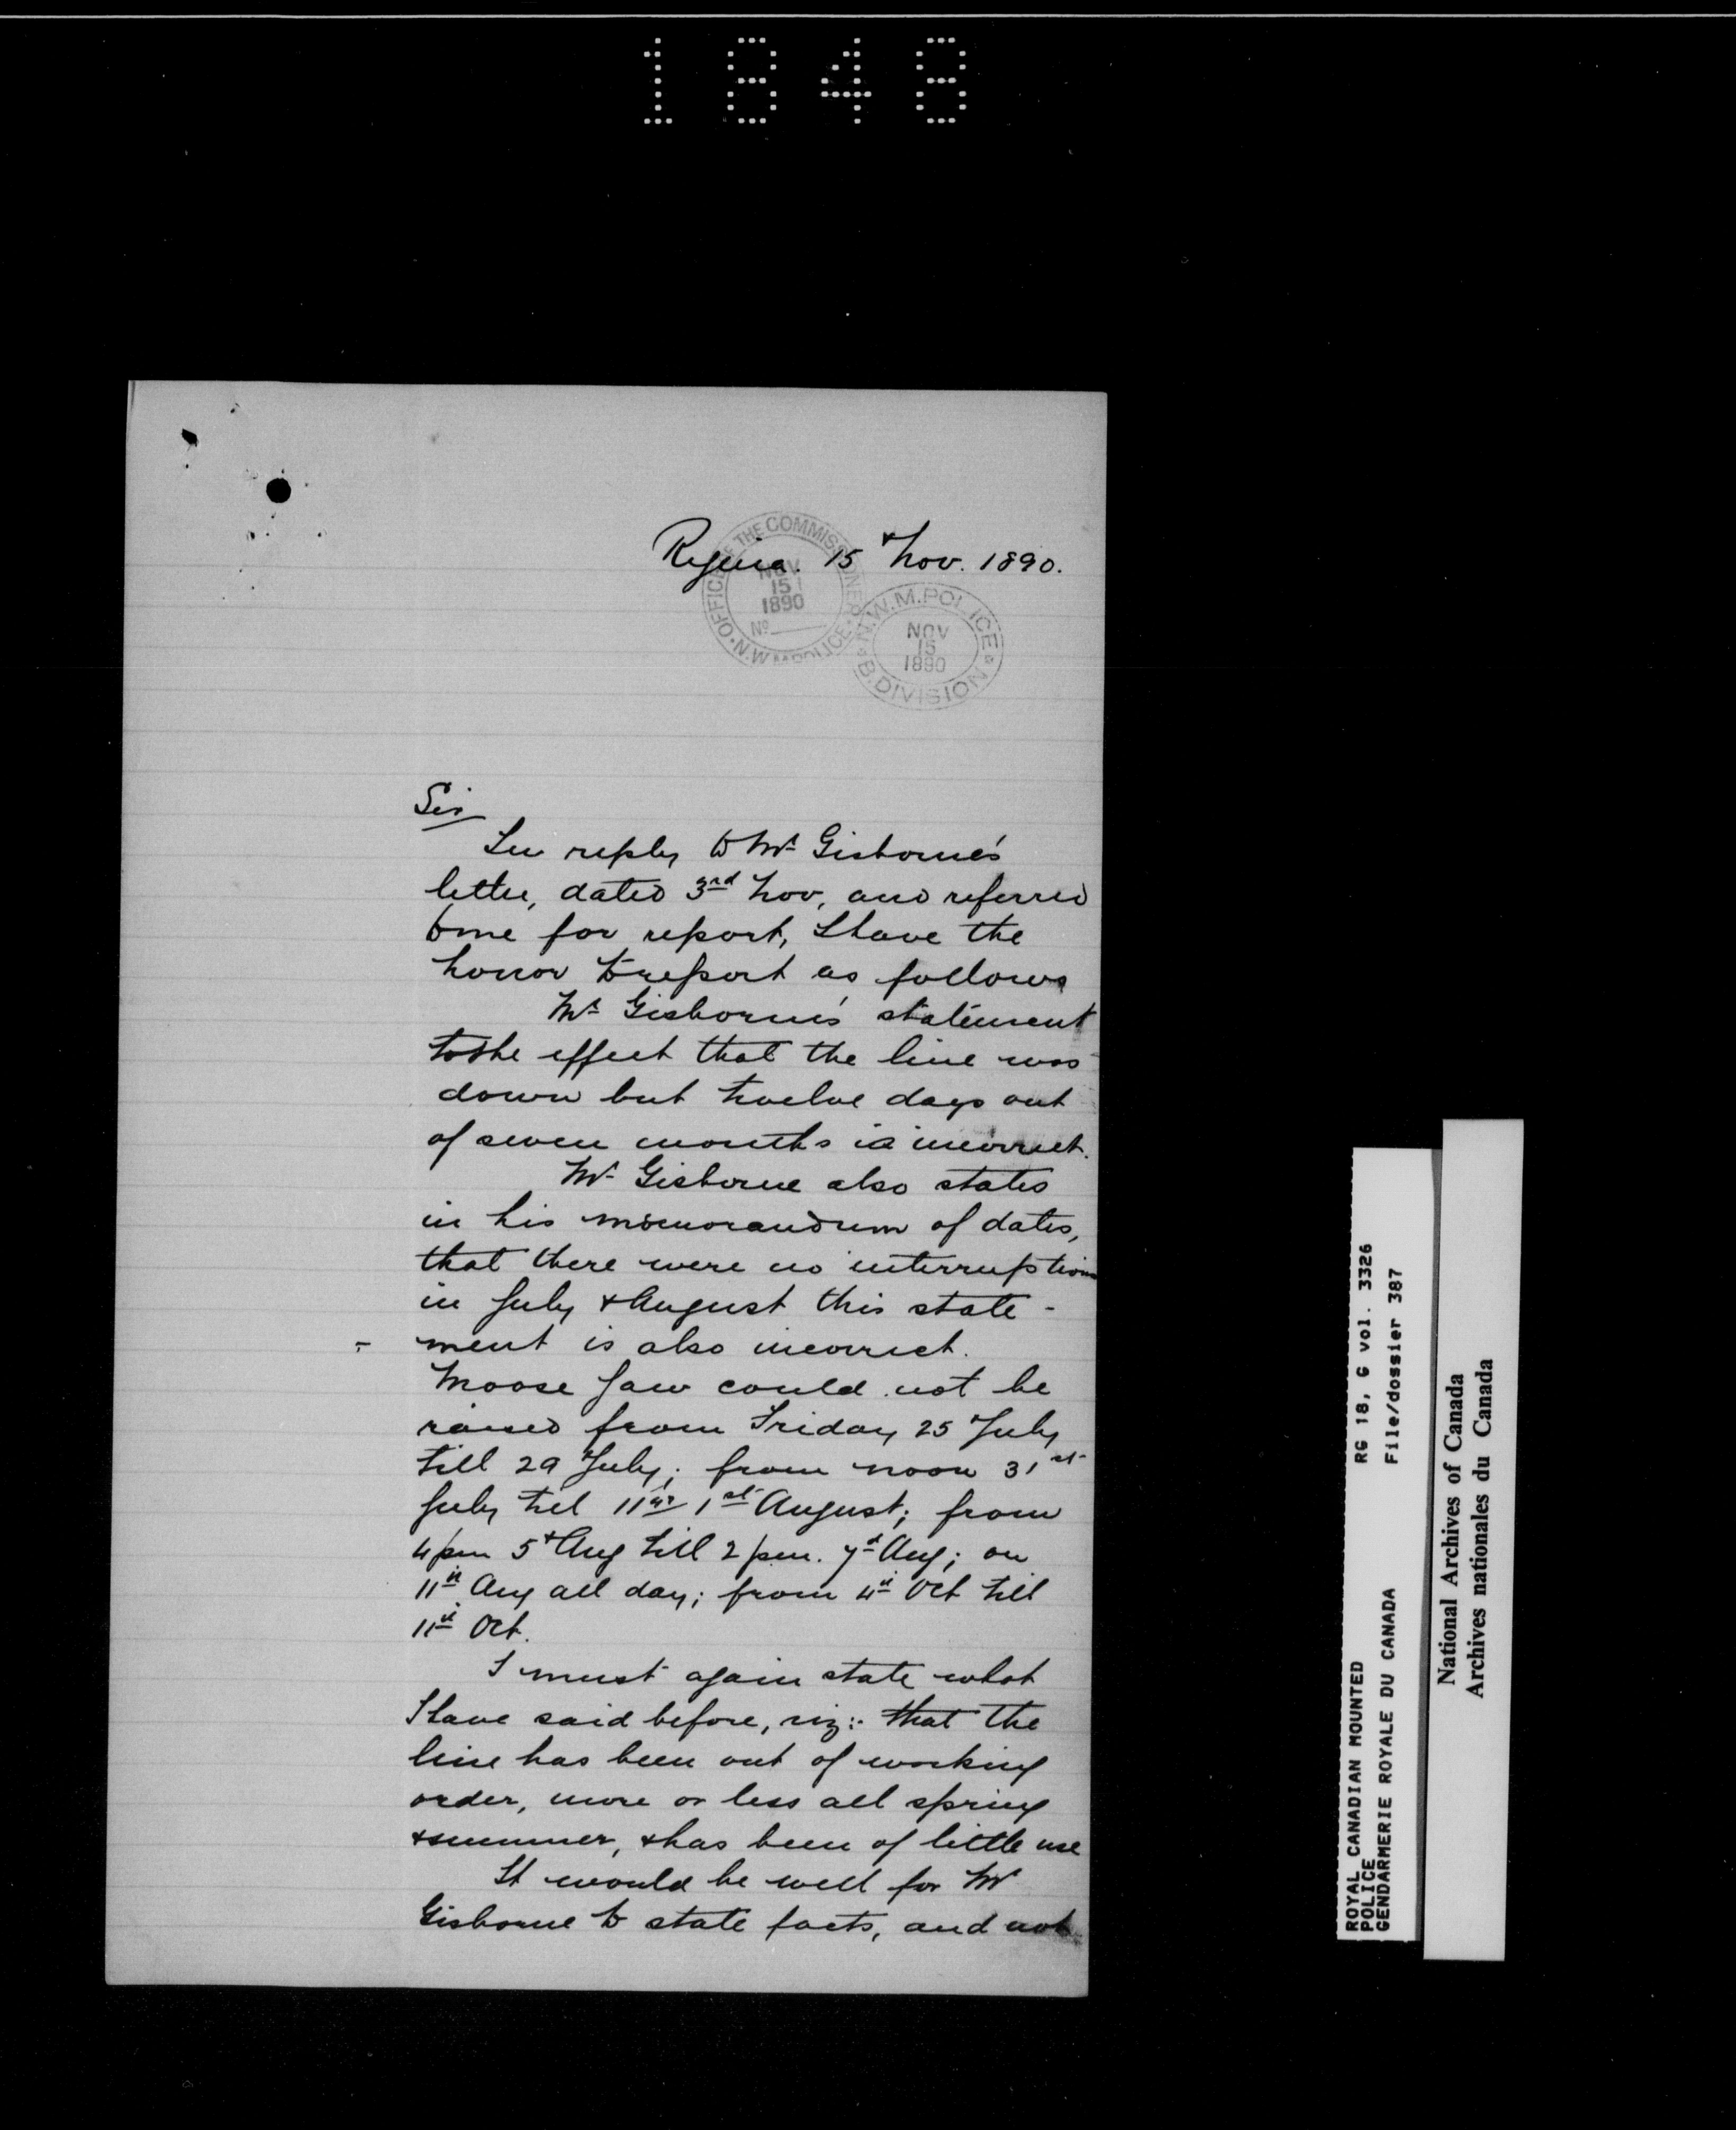 1848
Regina. 15th Nov. 1890.
OFFICE OF THE COMMISSIONER
N.W.M. POLICE
NOV
15
1890
No
N.W.M. POLICE
NOV
15
1890
B. DIVISION
Sir
In reply to Mr Gisborne's
letter, dated 3rd Nov, and referred
to me for report, I have the
honor to report as follows
Mr Gisborne's statement
to the effect that the line was
down but twelve days out
of seven months is incorrect.
Mr Gisborne also states
in his memorandum of dates,
that there were no interruptions
in July & August this state-
ment is also incorrect.
Moose Jaw could not be
raised from Friday 25 July
till 29 July; from noon 31st
July till 11 1st August; from
4 pm 5th Aug till 2 pm. 7th Aug; on
11th Aug all day; from 4th Oct till
11th Oct.
I must again state what
I have said before, viz:- that the
line has been out of working
order, more or less all spring
& summer, & has been of little use
It would be well for Mr
Gisborne to state facts, and not
ROYAL CANADIAN MOUNTED
POLICE
GENDARMERIE ROYALE DU CANADA
RG 18, G vol. 3326
File/dossier 387
National Archives of Canada
Archives nationales du Canada